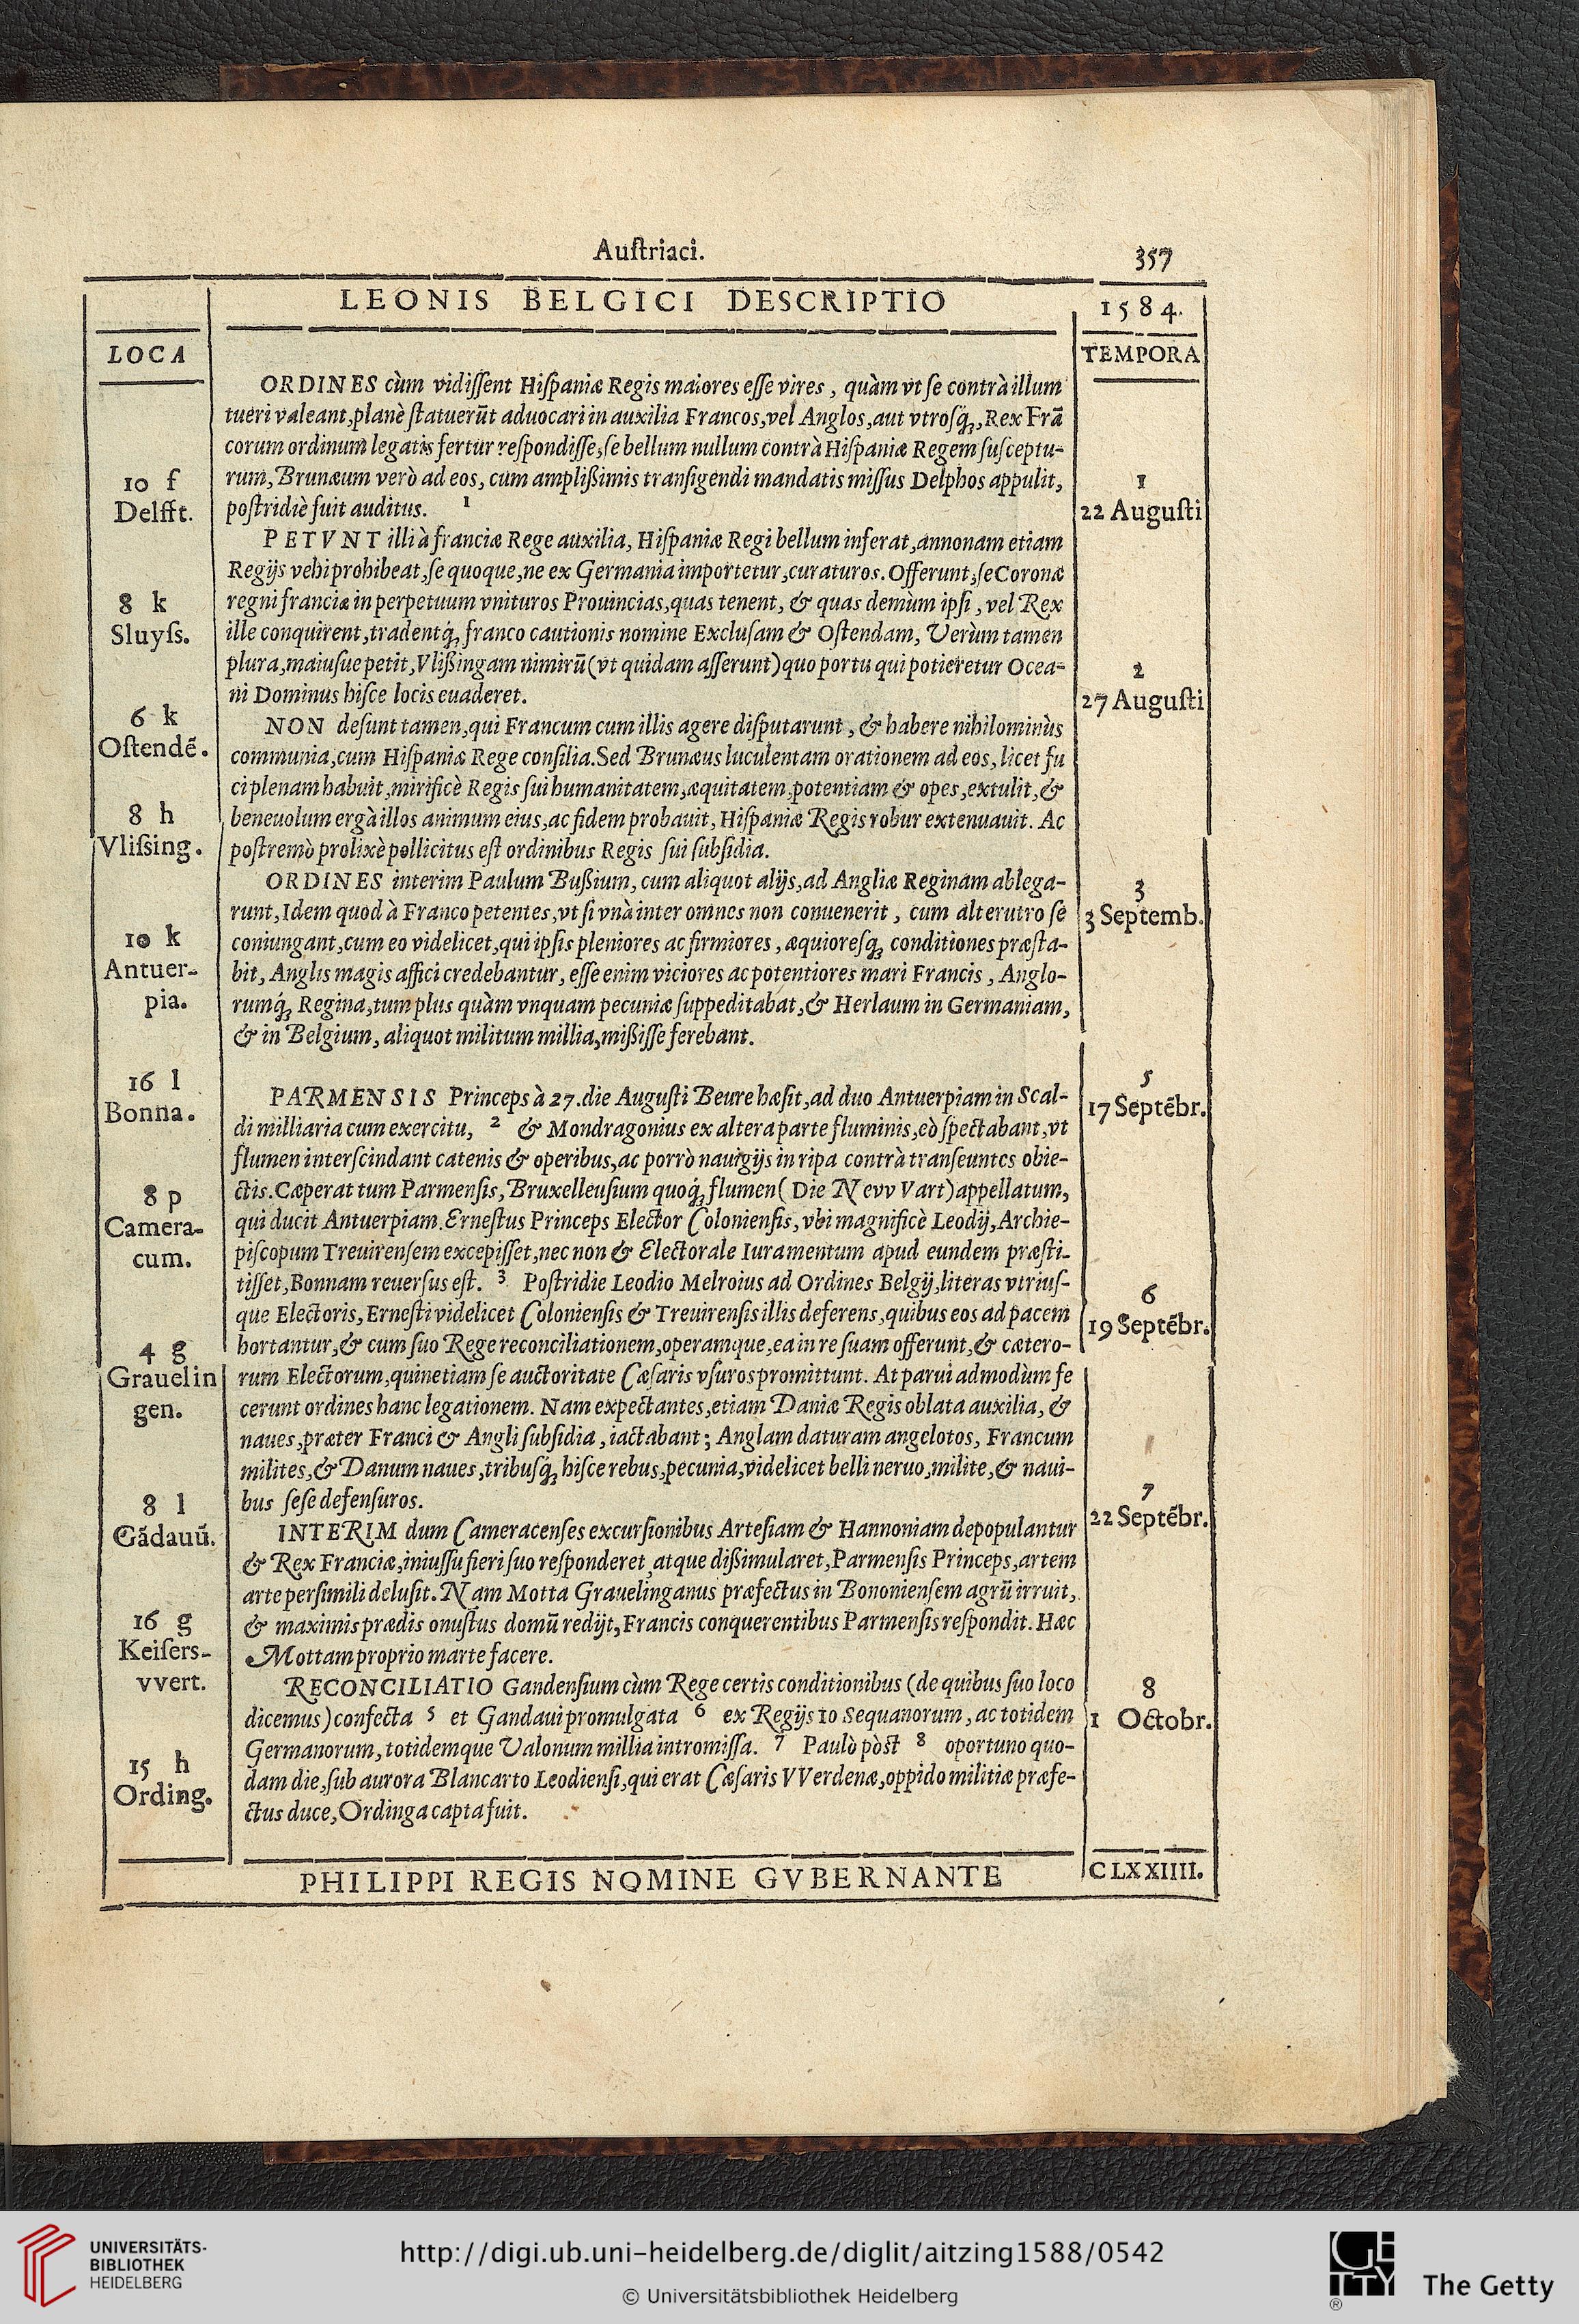 Auſtriaci.
357
LEONIS BELGICI DESCRIPTIO
1584.
LOCA
TEMPORA
ORDINES cùm vidiſſent Hiſpaniæ Regis maiores eſſe vires, quàm vt ſe contrà illum
tueri valeant, planè ſtatuerūt aduocari in auxilia Francos, vel Anglos, aut vtroſq́;, Rex Frā
corum ordinum legatis fertur reſpondiſſe, ſe bellum nullum contrà Hiſpaniæ Regem ſuſceptu-
rum, Brunæum verò ad eos, cum ampliſſimis tranſigendi mandatis miſſus Delphos appulit,
poſtridiè fuit auditus. 1
PETVNT illi à franciæ Rege auxilia, Hiſpaniæ Regi bellum inferat, annonam etiam
Regijs vehi prohibeat, ſe quoque, ne ex Germania importetur, curaturos. Offerunt, ſe Coronæ
regni franciæ in perpetuum vnituros Prouincias, quas tenent, & quas demùm ipſi, vel Rex
ille conquirent, tradentq́; franco cautionis nomine Excluſam & Oſtendam, Verùm tamen
plura, maiuſue petit, Vlißingam nimirū (vt quidam aſſerunt) quo portu qui potieretur Ocea-
ni Dominus hiſce locis euaderet.
NON deſunt tamen, qui Francum cum illis agere diſputarunt, & habere nihilominùs
communia, cum Hiſpaniæ Rege conſilia. Sed Brunæus luculentam orationem ad eos, licet fu
ci plenam habuit, mirificè Regis ſui humanitatem, æquitatem, potentiam & opes, extulit, &
beneuolum ergà illos animum eius, ac fidem probauit, Hiſpaniæ Regis robur extenuauit. Ac
poſtremò prolixè pollicitus eſt ordinibus Regis ſui ſubſidia.
ORDINES interim Paulum Bußium, cum aliquot alijs, ad Angliæ Reginam ablega-
runt, Idem quod à Franco petentes, vt ſi vnà inter omnes non conuenerit, cum alterutro ſe
coniungant, cum eo videlicet, qui ipſis pleniores ac firmiores, æquioreſq́; conditiones præſta-
bit, Anglis magis affici credebantur, eſſe enim viciores ac potentiores mari Francis, Anglo-
rumq́; Regina, tum plus quàm vnquam pecuniæ ſuppeditabat, & Herlaum in Germaniam,
& in Belgium, aliquot militum millia, mißiſſe ferebant.
PARMENSIS Princeps à 27. die Auguſti Beure hæſit, ad duo Antuerpiam in Scal-
di milliaria cum exercitu, 2 & Mondragonius ex altera parte fluminis, eò ſpectabant, vt
flumen interſcindant catenis & operibus, ac porrò nauigijs in ripa contrà tranſeuntes obie-
ctis. Cæperat tum Parmenſis, Bruxellenſium quoq́; flumen (Die Nevv Vart) appellatum,
qui ducit Antuerpiam. Erneſtus Princeps Elector Colonienſis, vbi magnificè Leodij, Archie-
piſcopum Treuirenſem excepiſſet, nec non & Electorale Iuramentum apud eundem præſti-
tiſſet, Bonnam reuerſus eſt. 3 Poſtridie Leodio Melroius ad Ordines Belgij, literas vtriuſ-
que Electoris, Erneſti videlicet Colonienſis & Treuirenſis illis deferens, quibus eos ad pacem
hortantur, & cum ſuo Rege reconciliationem, operamque, ea in re ſuam offerunt, & cætero-
rum Electorum, quinetiam ſe auctoritate Cæſaris vſuros promittunt. At parui admodùm fe
cerunt ordines hanc legationem. Nam expectantes, etiam Daniæ Regis oblata auxilia, &
naues, præter Franci & Angli ſubſidia, iactabant; Anglam daturam angelotos, Francum
milites, & Danum naues, tribuſq́; hiſce rebus, pecunia, videlicet belli neruo, milite, & naui-
bus ſeſe defenſuros.
INTERIM dum Cameracenſes excurſionibus Arteſiam & Hannoniam depopulantur
& Rex Franciæ, iniuſſu fieri ſuo reſponderet, atque dißimularet, Parmenſis Princeps, artem
arte perſimili deluſit. Nam Motta Grauelinganus præfectus in Bononienſem agrū irruit,
& maximis prædis onuſtus domū redijt, Francis conquerentibus Parmenſis reſpondit. Hæc
Mottam proprio marte facere.
RECONCILIATIO Gandenſium cùm Rege certis conditionibus (de quibus ſuo loco
dicemus) confecta 5 et Gandaui promulgata 6 ex Regijs 10 Sequanorum, ac totidem
Germanorum, totidemque Valonum millia intromiſſa. 7 Paulò pòſt 8 oportuno quo-
dam die, ſub aurora Blancarto Leodienſi, qui erat Cæſaris VVerdenæ, oppido militiæ præfe-
ctus duce, Ordinga capta fuit.
10 f
Delfft.
8 k
Sluyſs.
6 k
Oſtendē.
8 h
Vliſsing.
10 k
Antuer-
pia.
16 l
Bonna.
8 p
Camera-
cum.
4 g
Grauelin
gen.
8 l
Gādauū.
16 g
Keiſers-
vvert.
15 h
Ording.
1
22 Auguſti
2
27 Auguſti
3
3 Septemb.
5
17 Septēbr.
6
19 Septēbr.
7
22 Septēbr.
8
1 Octobr.
PHILIPPI REGIS NOMINE GVBERNANTE
CLXXIIII.
UNIVERSITÄTS-
BIBLIOTHEK
HEIDELBERG
http://digi.ub.uni-heidelberg.de/diglit/aitzing1588/0542
© Universitätsbibliothek Heidelberg
GETTY
®
The Getty